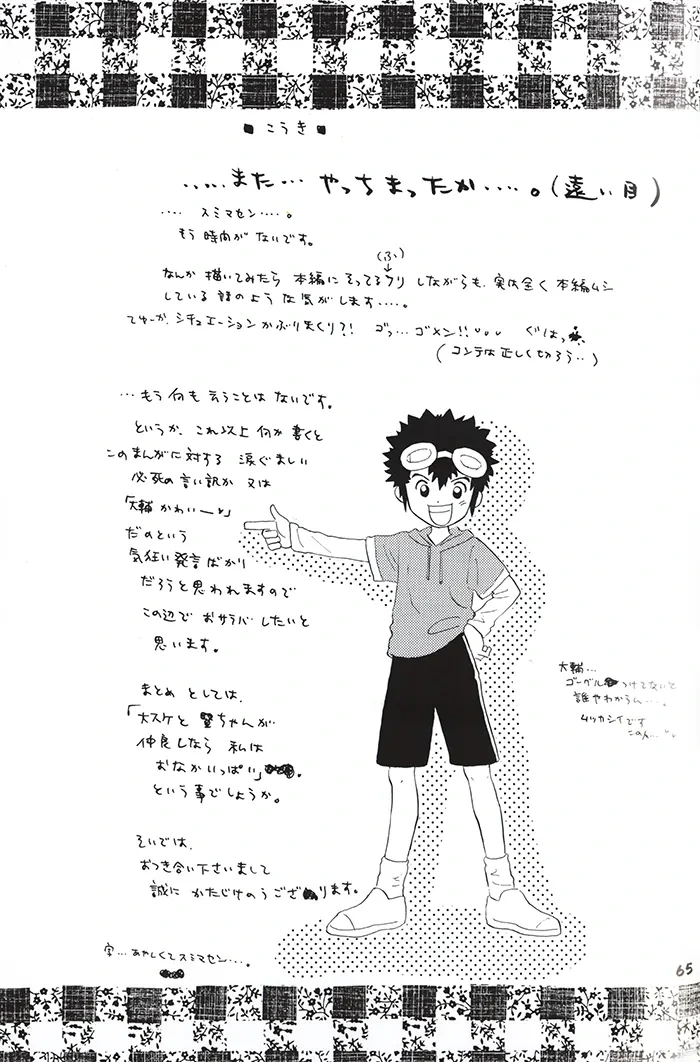 ■ こうき ■
.....また… やっちまったか....。(遠い目)
.... スミマセン....。
もう 時間が ないです。
(ふ)
なんか 描いてみたら 本編に そってるフリ しながらも、実は全く 本編ムシ
している 話のような気がします....。
てゆーか、シチュエーションかぶりまくり?! ゴッ…ゴメン!! ぐはっ
(コンテは正しく切ろう..)
…もう何も 云うことは ないです。
というか、これ以上 何か 書くと
このまんがに対する 涙ぐましい
必死の言い訳か 又は
「大輔かわいー♥」
だのという
気狂い発言ばかり
だろうと思われますので
この辺で おサラバ したいと
思います。
まとめ としては、
「大スケと 賢ちゃんが
仲良しなら 私は
おなかいっぱい」
という事でしょうか。
そいでは、
おつき合い下さいまして
誠に かたじけのうござります。
字…あやしくてスミマセン…。
大輔…
ゴーグルつけてないと
誰やわからん…。
ムツカシイです
このん…
65